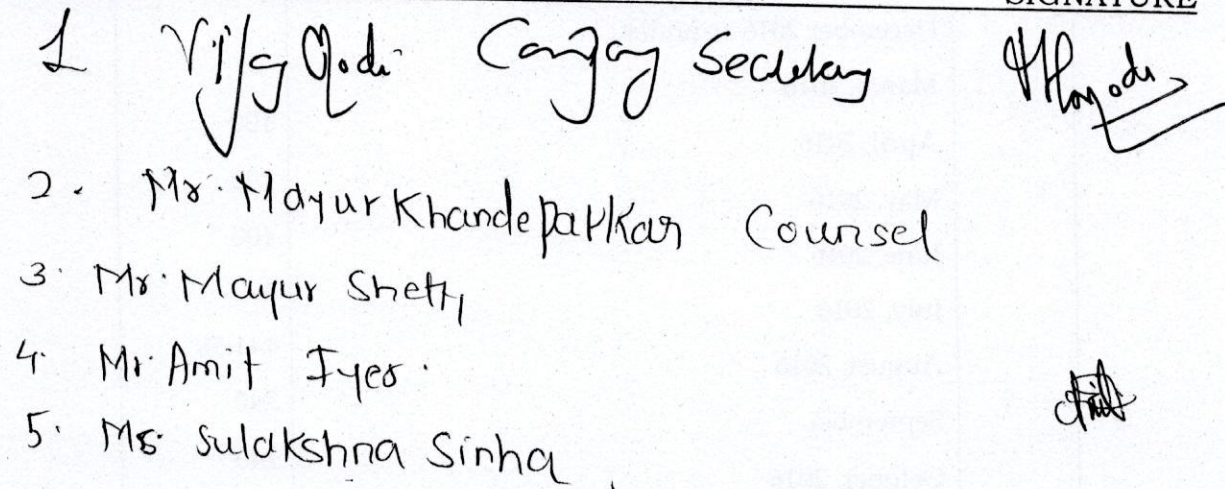 SIGNATURE
1 Vijay Modi Company Secretary
2. Mr. Mayur Khandeparkar Counsel
3. Mr. Mayur Shetty
4. Mr. Amit Iyer.
5. Ms. Sulakshna Sinha